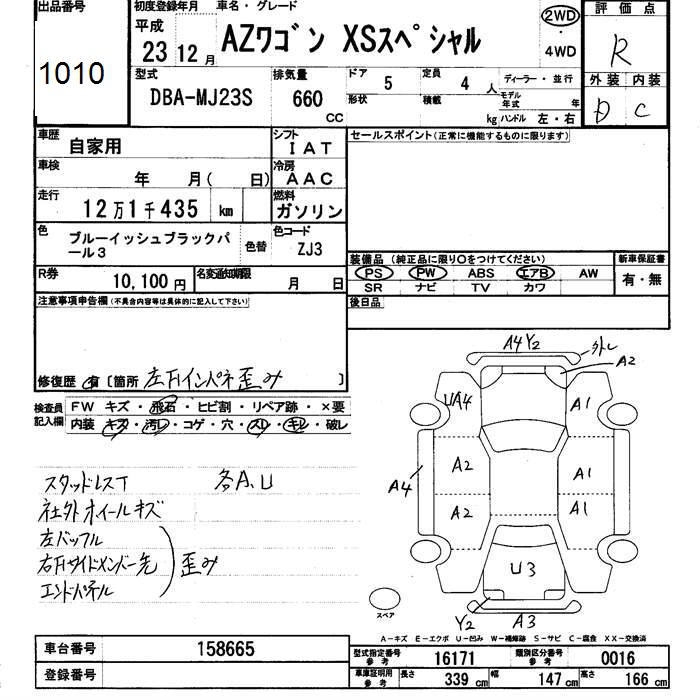 出品番号
1010
初度登録年月
平成
23 12 月
車名・グレード
AZワゴン XSスペシャル
2WD
・
4WD
評価点
R
外装 内装
D C
型式
DBA-MJ23S
排気量
660
CC
ドア 5
形状
定員 4 人
積載 kg
ディーラー・並行
モデル年式 年
ハンドル 左・右
車歴
自家用
シフト
IAT
車検
年 月( 日)
冷房
AAC
走行
12万1千435 km
燃料
ガソリン
色
ブルーイッシュブラックパ
ール3
色替
色コード
ZJ3
R券
10,100円
名変通知期限
月 日
セールスポイント(正常に機能するものに限ります)
装備品 (純正品に限り○をつけてください)
PS PW ABS エアB AW
SR ナビ TV カワ
新車保証書
有・無
後日品
注意事項申告欄(不具合内容等は具体的に記入して下さい)
修復歴 有 〔箇所 左Fインパネ歪み 〕
検査員
記入欄
FW キズ・飛石・ヒビ割・リペア跡・×要
内装 キズ・汚レ・コゲ・穴・スレ・キレ・破レ
スタッドレスT 各A.U
社外ホイールキズ
左バッフル
右Fサイドメンバー先
エンドパネル
歪み
A4Y2
外レ
A2
UA4
A1
A2
A1
A4
A2
A1
U3
Y2
A3
スペア
A-キズ E-エクボ U-凹み W-補修跡 S-サビ C-腐食 XX-交換済
車台番号
158665
登録番号
型式指定番号
参考
16171
類別区分番号
参考
0016
車庫証明用
参考
長さ 339 cm
幅 147 cm
高さ 166 cm